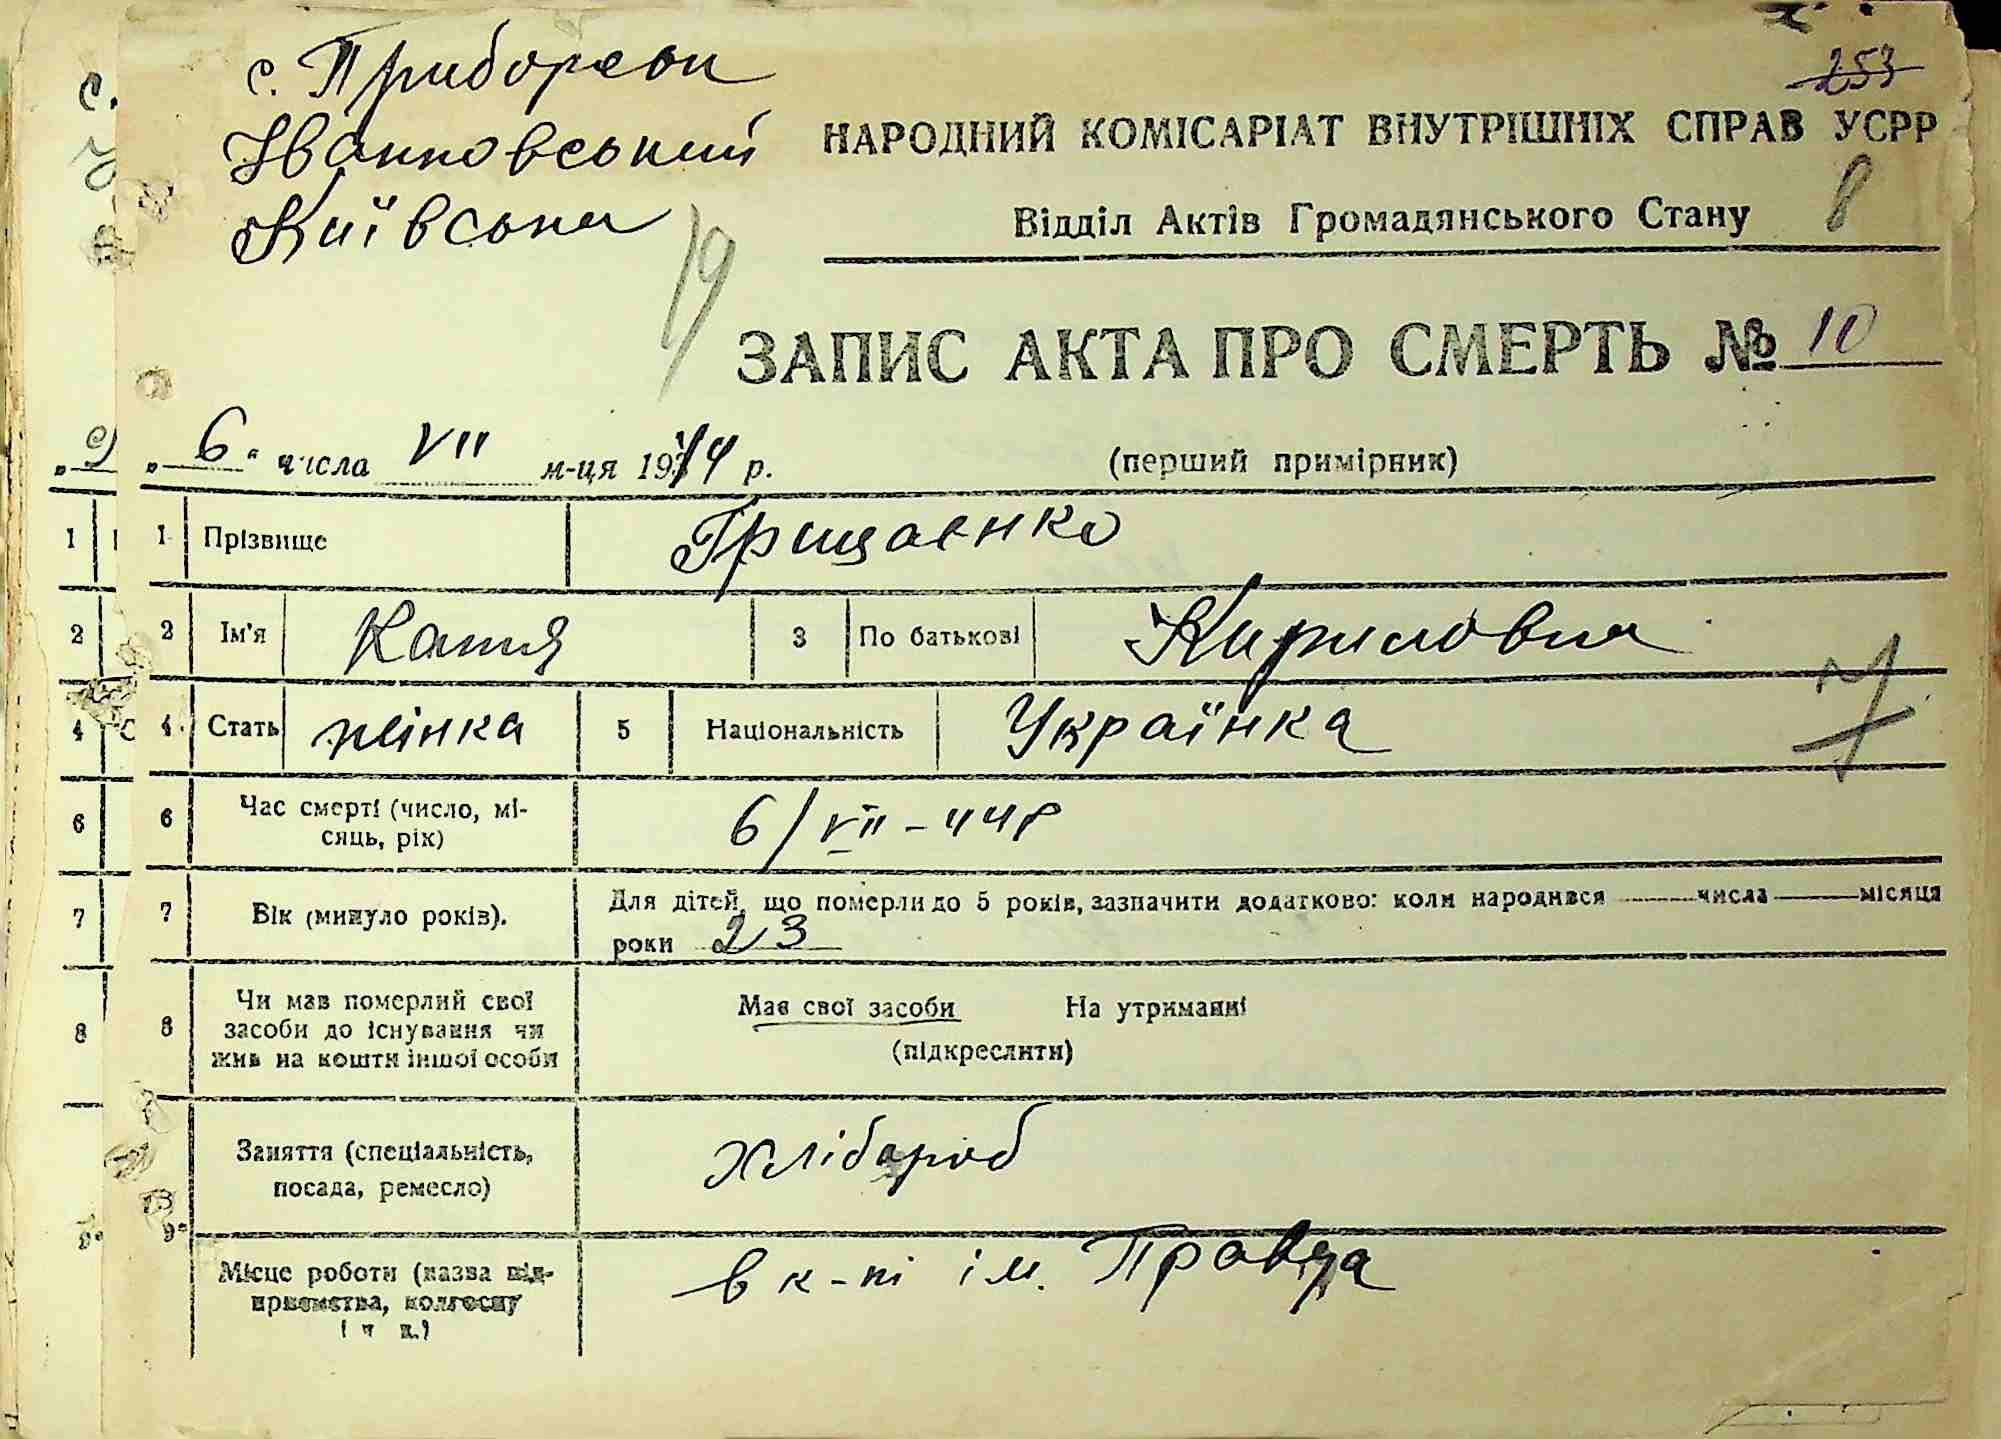 253
с. Приборськ
Іванковський
Київська
НАРОДНИЙ КОМІСАРІАТ ВНУТРІШНІХ СПРАВ УСРР
Відділ Актів Громадянського Стану
8
19
ЗАПИС АКТА ПРО СМЕРТЬ № 10
„ 6 " числа VII м-ця 1944 р. (перший примірник)
1 1 Прізвище Грищаенко
2 2 Ім'я Катя 3 По батькові Кириловна
4 4 Стать жінка 5 Національність Українка
6 6 Час смерті (число, мі-
сяць, рік) 6/VII - 44 р
7 7 Вік (минуло років). Для дітей, що померли до 5 років, зазначити додатково: коли народився числа місяця
роки 23
8 8 Чи мав померлий свої
засоби до існування чи
жив на кошти іншої особи
Має свої засоби На утриманні
(підкреслити)
9 Заняття (спеціальність,
посада, ремесло) хлібароб
Місце роботи (назва під-
приємства, колгоспу
і т. д.) в к-пі ім. Правда